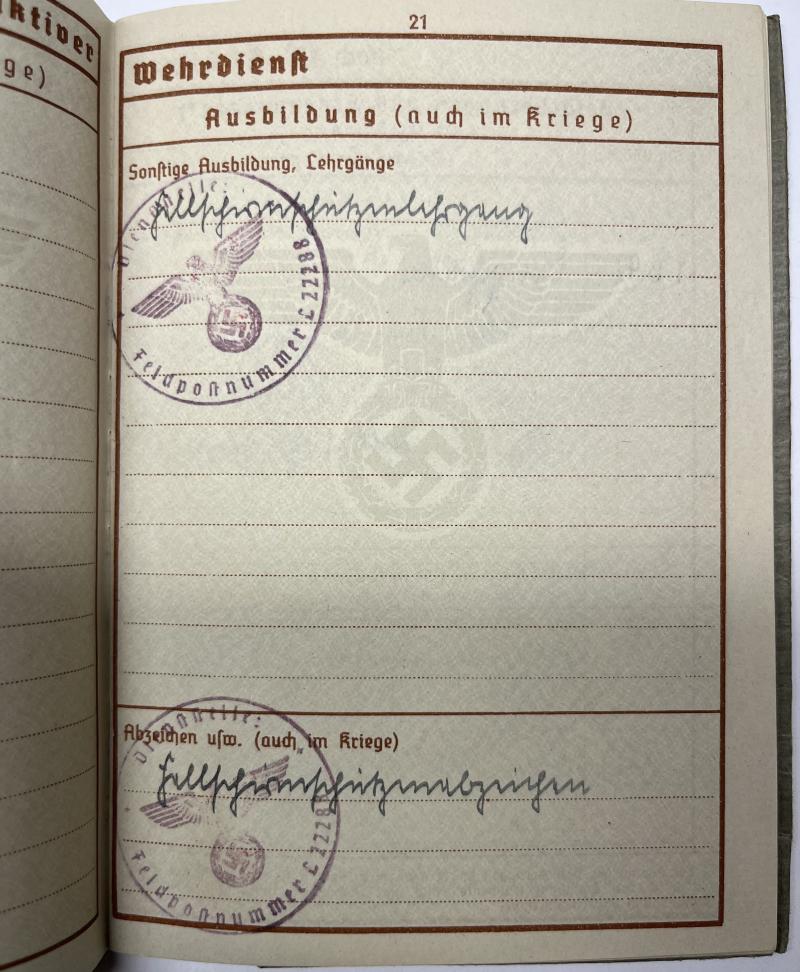 ktiver
ge)
21
Wehrdienst
Ausbildung (auch im Kriege)
Sonstige Ausbildung, Lehrgänge
Fallschirmschützenlehrgang
Dienststelle:
Feldpostnummer L 22288
Abzeichen usw. (auch im Kriege)
Fallschirmschützenabzeichen
Dienststelle:
Feldpostnummer L 22288